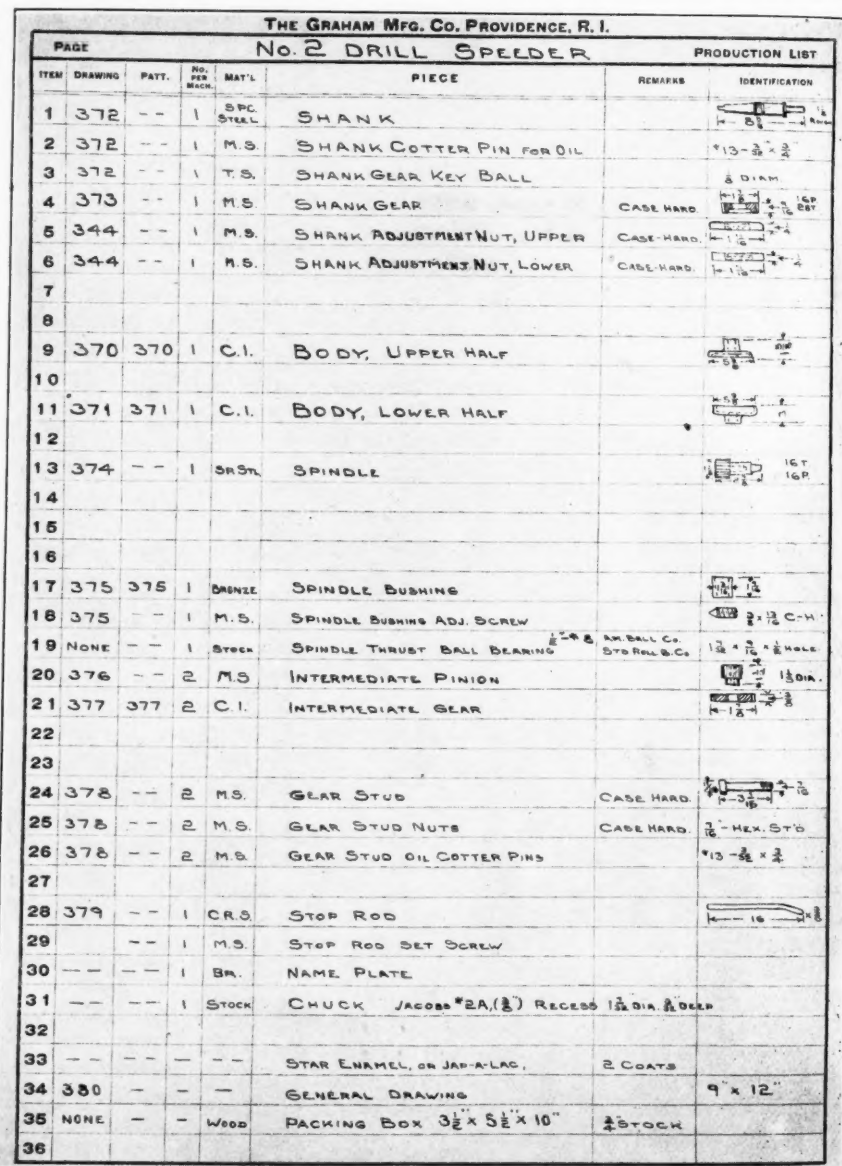 THE GRAHAM MFG. CO. PROVIDENCE, R. I.
PAGE No. 2 DRILL SPEEDER PRODUCTION LIST
ITEM DRAWING PATT. No. PER MACH. MAT'L PIECE REMARKS IDENTIFICATION
1 372 -- 1 SPC. STEEL SHANK
2 372 -- 1 M.S. SHANK COTTER PIN FOR OIL #13-3/32" x 3/4"
3 372 -- 1 T.S. SHANK GEAR KEY BALL 1/8 DIAM.
4 373 -- 1 M.S. SHANK GEAR CASE HARD. 16P 28T
5 344 -- 1 M.S. SHANK ADJUSTMENT NUT, UPPER CASE-HARD. 1/4
6 344 -- 1 M.S. SHANK ADJUSTMENT NUT, LOWER CASE-HARD. 1/4
7
8
9 370 370 1 C.I. BODY, UPPER HALF
10
11 371 371 1 C.I. BODY, LOWER HALF
12
13 374 -- 1 SPINDLE 16T. 16P.
14
15
16
17 375 375 1 BRONZE SPINDLE BUSHING
18 375 -- 1 M.S. SPINDLE BUSHING ADJ. SCREW 3/8 x 13/16 C-H
19 NONE -- 1 STOCK SPINDLE THRUST BALL BEARING AM. BALL CO. STD ROLL B. Co HOLE
20 376 -- 2 M.S INTERMEDIATE PINION DIA.
21 377 377 2 C.I. INTERMEDIATE GEAR
22
23
24 378 -- 2 M.S. GEAR STUD CASE HARD.
25 378 -- 2 M.S. GEAR STUD NUTS CASE HARD. 7/16"-HEX. ST'D
26 378 -- 2 M.S. GEAR STUD OIL COTTER PINS #13-3/32 x 3/4
27
28 379 -- 1 C.R.S. STOP ROD 16
29 -- 1 M.S. STOP ROD SET SCREW
30 -- -- 1 BR. NAME PLATE
31 -- -- 1 STOCK CHUCK JACOBS #2A, (3/8") RECESS DIA. DEEP
32
33 -- -- -- -- STAR ENAMEL, OR JAP-A-LAC, 2 COATS
34 380 - - - GENERAL DRAWING 9" x 12"
35 NONE - - WOOD PACKING BOX 3 1/2" x 5 1/2" x 10" 3/4" STOCK
36